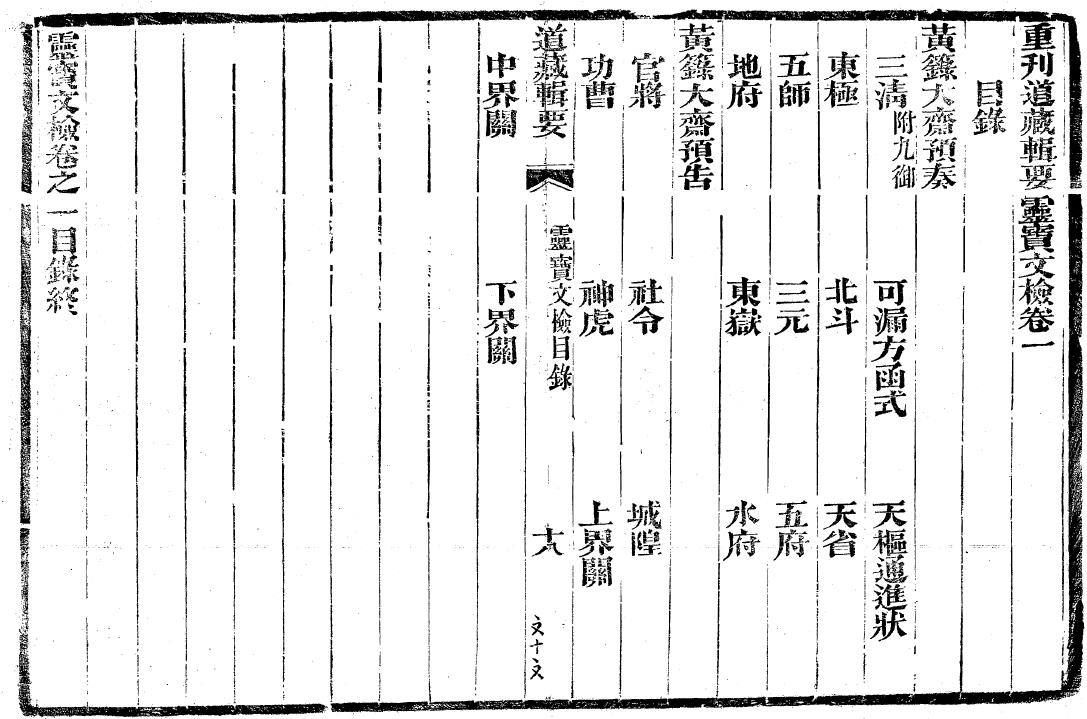 重刊道藏輯要靈寶文檢卷一
目錄
黃籙大齋預奏
三清附九御 可漏方函式 天樞通進狀
東極 北斗 天省
五師 三元 五府
地府 東嶽 水府
黃籙大齋預告
官將 社令 城隍
功曹 神虎 上界關
道藏輯要 靈寶文檢目錄
中界關 下界關
靈寶文檢卷之一目錄終